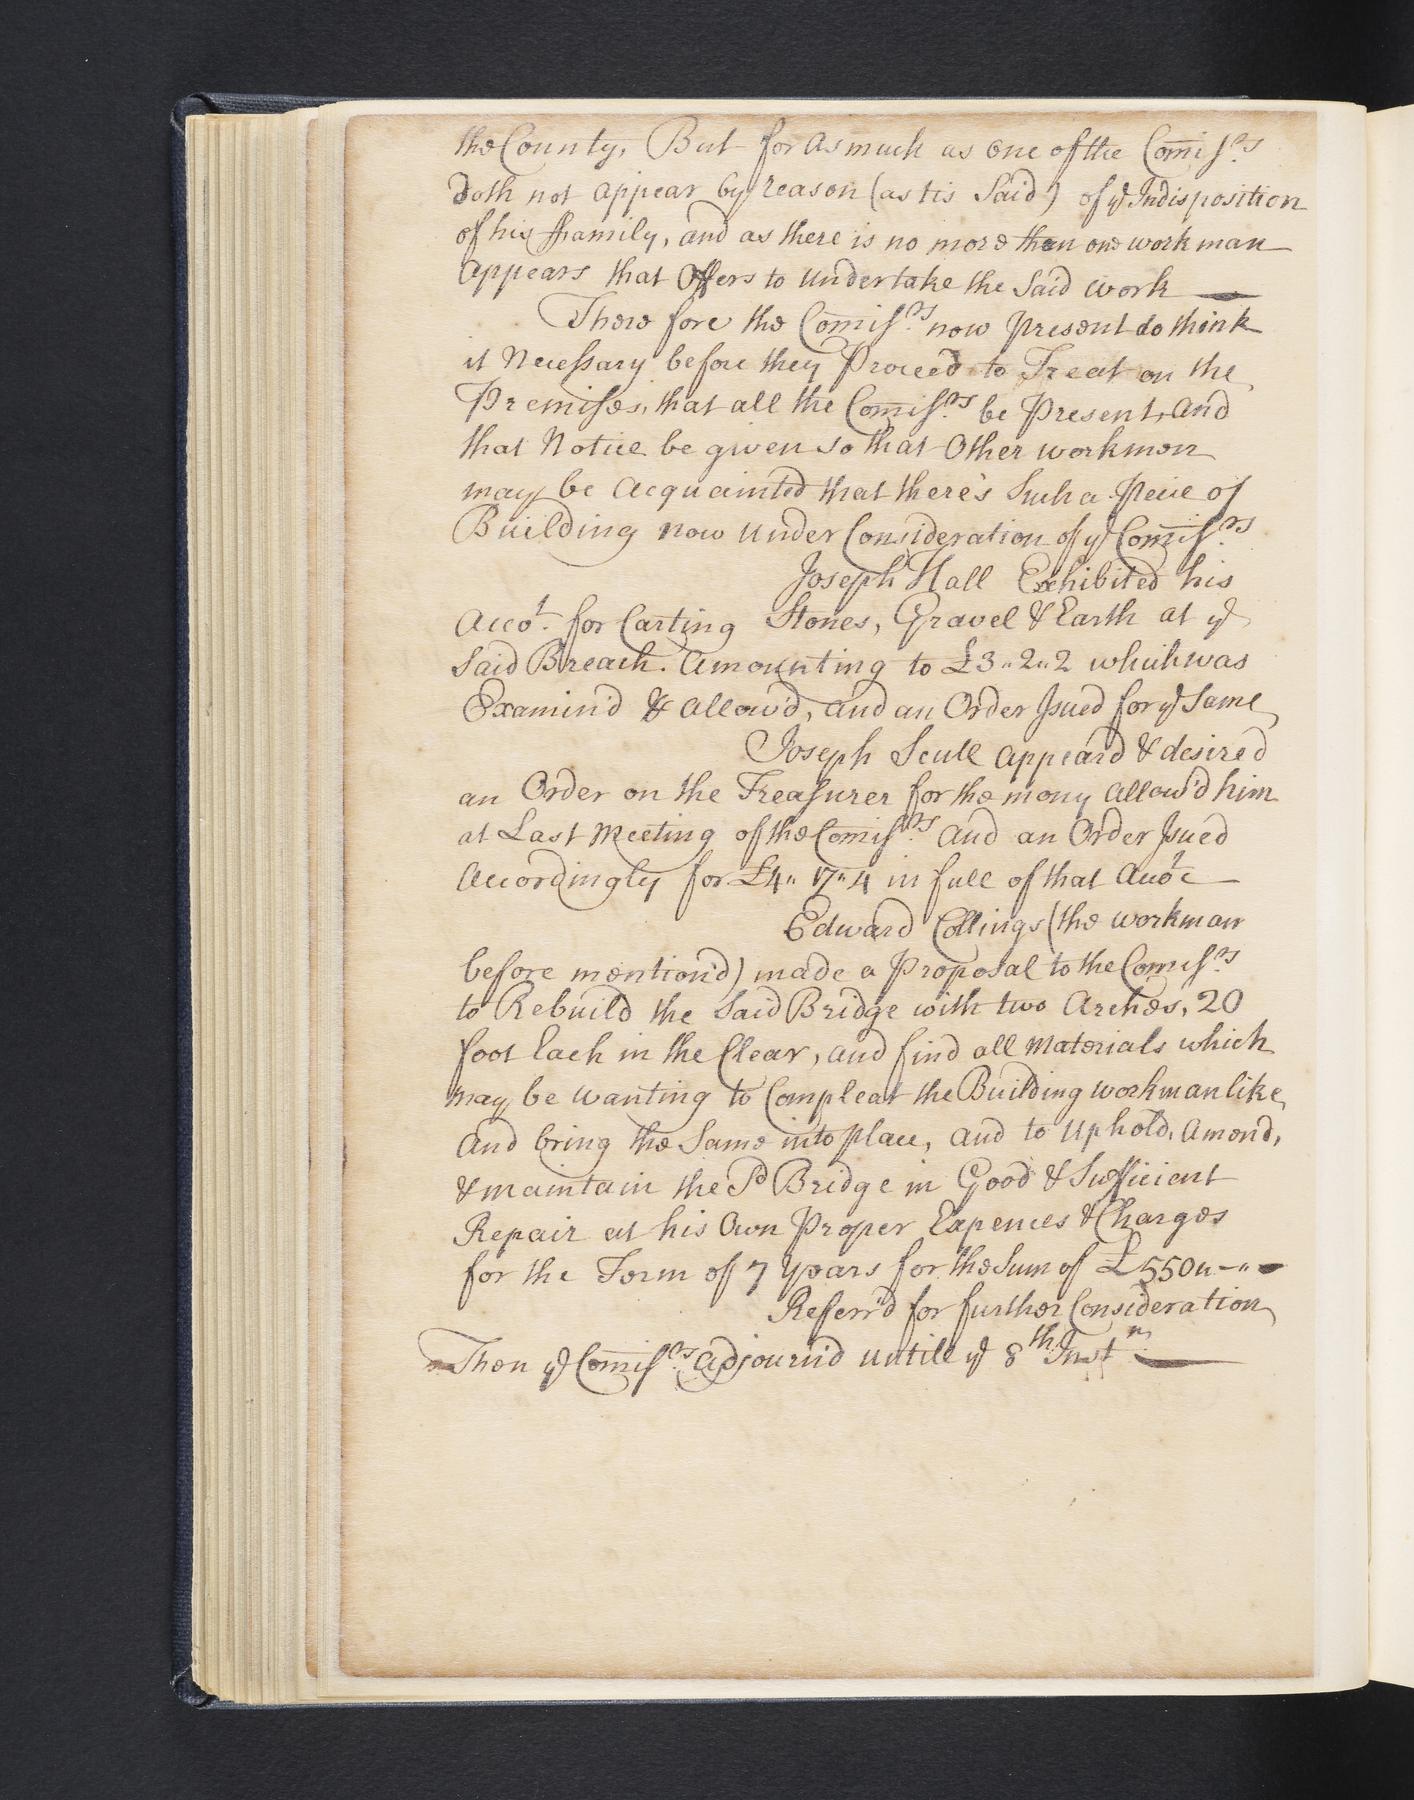 the County, But for Asmuch as one of the Comiss.rs
Doth not appear by reason (as tis Said) of ye Indisposition
of his ffamily, and as there is no more than one workman
appears that Offers to undertake the Said work —
There fore the Comiss.rs now Present do think
it Necessary before they Proceed to Treat on the
Premises, that all the Comiss.rs be Present, and
that Notice be given so that Other workmen
may be Acquainted that there's Such a Peice of
Building now under Consideration of ye Comiss.rs
Joseph Hall Exhibited his
Acco.t for Carting Stones, Gravel & Earth at ye
Said Breach. Amounting to £3 " 2 " 2 which was
Examin'd & allow'd, and an Order Isued for ye Same
Joseph Scull appeard & desired
an Order on the Treasurer for the mony allow'd him
at Last Meeting of the Comiss.rs and an Order Isued
Accordingly for £4 " 17 " 4 in full of that Acco.t —
Edward Collings (the workman
before mention'd) made a Proposal to the Comiss.rs
to Rebuild the Said Bridge with two Arches, 20
foot Each in the Clear, and find all Materials which
may be wanting to Compleat the Building workmanlike,
And bring the Same into Place, and to Uphold, Amend,
& maintain the Sd Bridge in Good & Sufficient
Repair at his Own Proper Expences & Charges
for the Term of 7 Years for the Sum of £550 " - " -
Referr'd for further Consideration
Then ye Comiss.rs Adjourn'd untill ye 8th Inst —